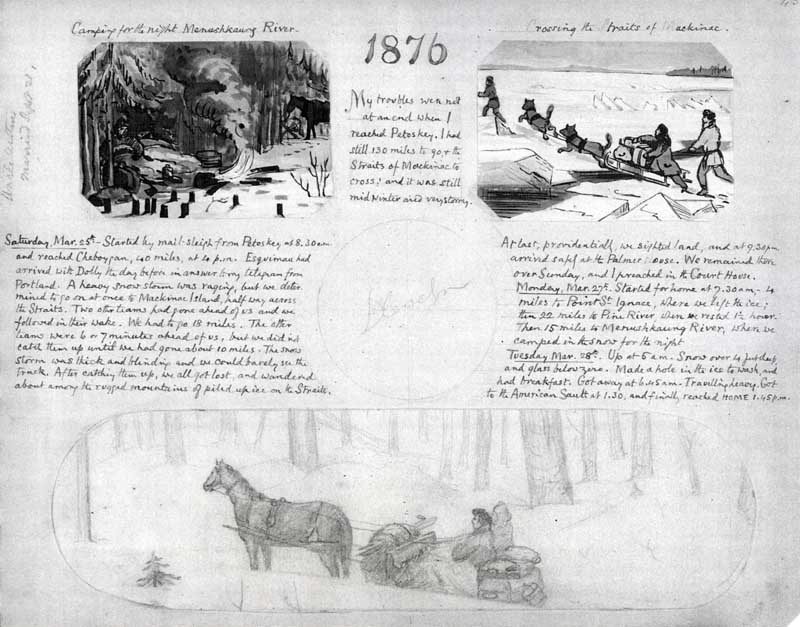 Camping for the night Menushkaung River.
Crossing the Straits of Mackinac.
1876
My troubles were not
at an end when I
reached Petoskey. I had
still 130 miles to go & the
Straits of Mackinac to
cross; and it was still
mid winter and very stormy.
married Apr 21,
Saturday, Mar. 25th - Started by mail-sleigh from Petoskey at 8.30 am
and reached Cheboygan, 40 miles, at 4 p.m. Esquimau had
arrived with Dolly the day before in answer to my telegram from
Portland. A heavy snow storm was raging, but we deter-
mined to go on at once to Mackinac Island, half way across
the Straits. Two other teams had gone ahead of us and we
followed in their wake. We had to go 18 miles. The other
teams were 6 or 7 minutes ahead of us, but we did not
catch them up until we had gone about 10 miles. The snow
storm was thick and blinding and we could barely see the
track. After catching them up, we all got lost, and wandered
about among the rugged mountains of piled up ice on the Straits.
At last, providentially, we sighted land, and at 9.30 pm
arrived safely at the Palmer House. We remained there
over Sunday, and I preached in the Court House.
Monday, Mar. 27th. Started for home at 7.30 am - 4
miles to Point St Ignace, where we left the ice;
then 22 miles to Pine River when we rested 1½ hour.
Then 15 miles to Menushkaung River, when we
camped in the snow for the night
Tuesday Mar. 28th. Up at 5 am. Snow over 4 feet deep
and glass below zero. Made a hole in the ice to wash, and
had breakfast. Got away at 6.45 am. Travelling heavy. Got
to the American Sault at 1.30, and finally reached HOME 1.45 p.m.